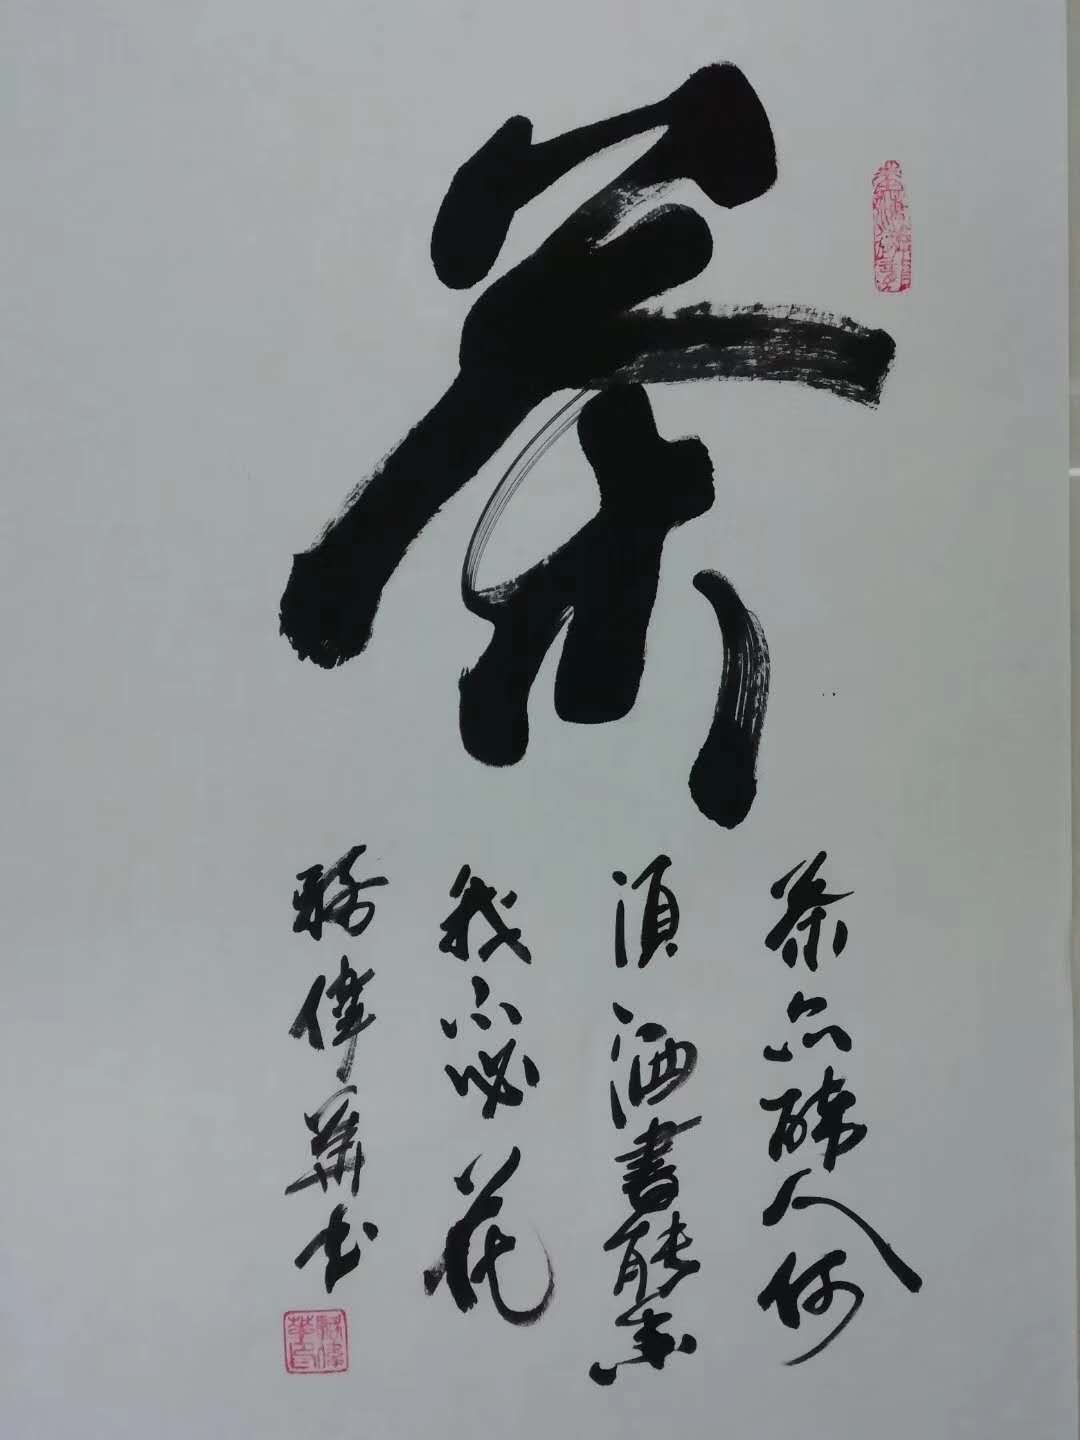 茶
茶亦醉人何
須酒書能香
我不必花
偉華书